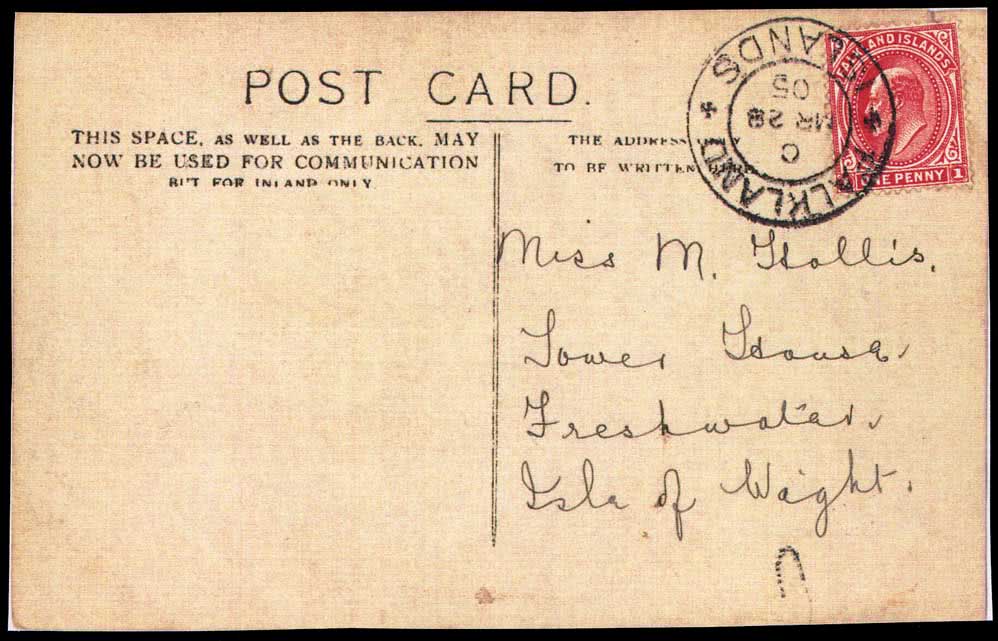 POST CARD.
THIS SPACE, AS WELL AS THE BACK, MAY
NOW BE USED FOR COMMUNICATION
BUT FOR INLAND ONLY.
THE ADDRESS
TO BE WRITTEN
FALKLAND ISLANDS
C
MR 28
05
FALKLAND ISLANDS
ONE PENNY 1
Miss M. Hollis.
Tower House
Freshwater
Isle of Wight.